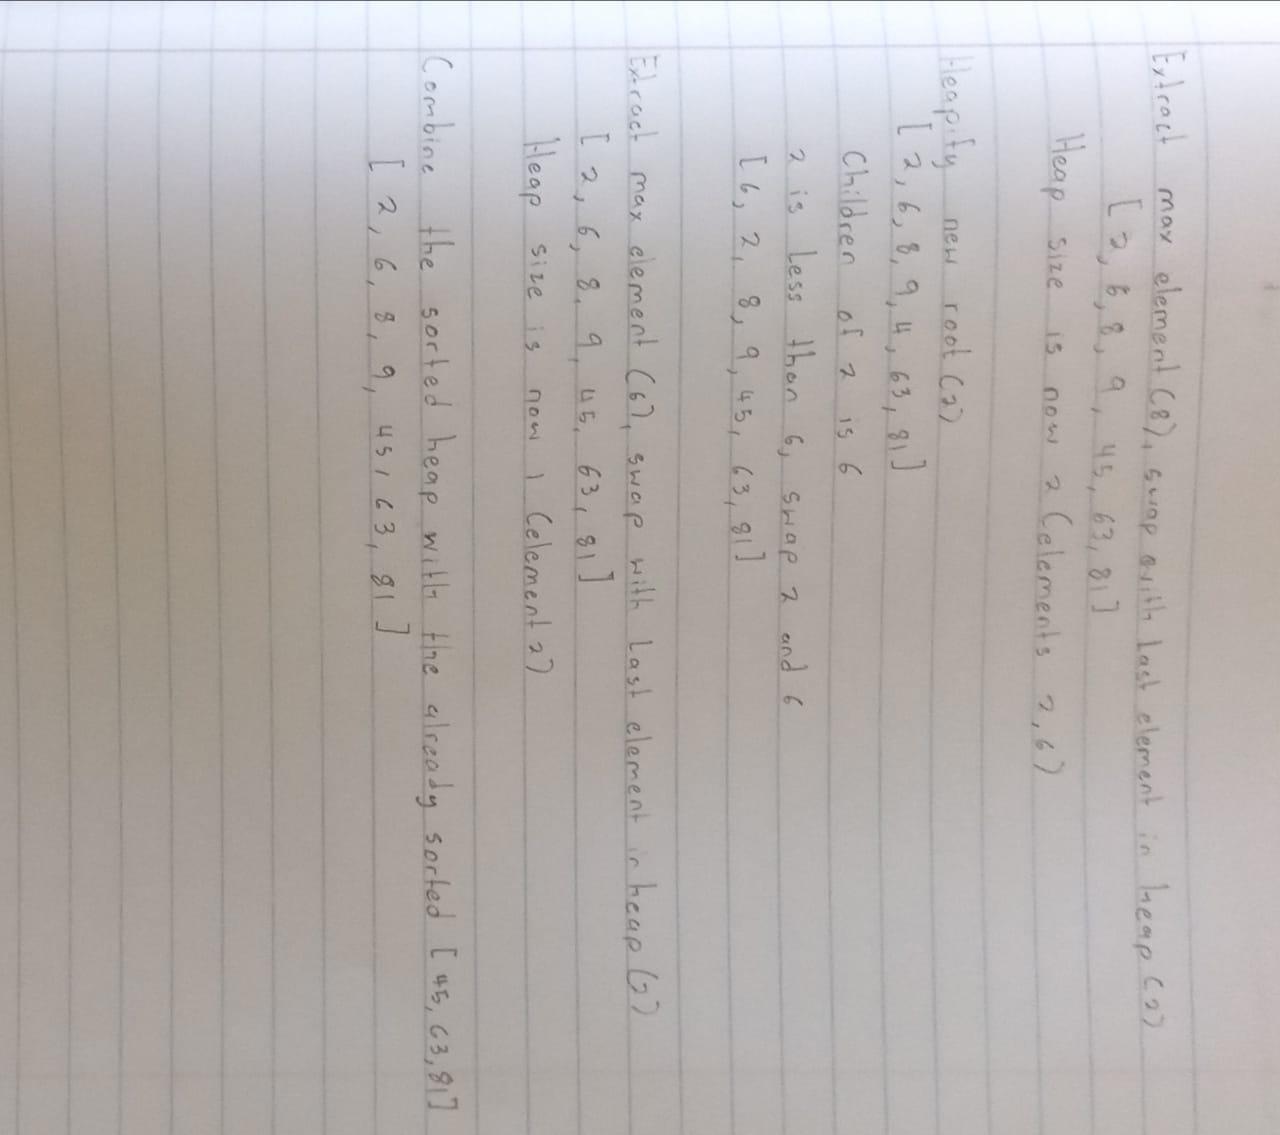 Extract max element (8), swap with last element in heap (2)
[ 2, 6, 8, 9, 45, 63, 81 ]
Heap size is now 2 (elements 2, 6)
Heapify new root (2)
[ 2, 6, 8, 9, 4, 63, 81 ]
Children of 2 is 6
2 is less than 6, swap 2 and 6
[ 6, 2, 8, 9, 45, 63, 81 ]
Extract max element (6), swap with last element in heap (2)
[ 2, 6, 8, 9, 45, 63, 81 ]
Heap size is now 1 (element 2)
Combine the sorted heap with the already sorted [ 45, 63, 81 ]
[ 2, 6, 8, 9, 45, 63, 81 ]